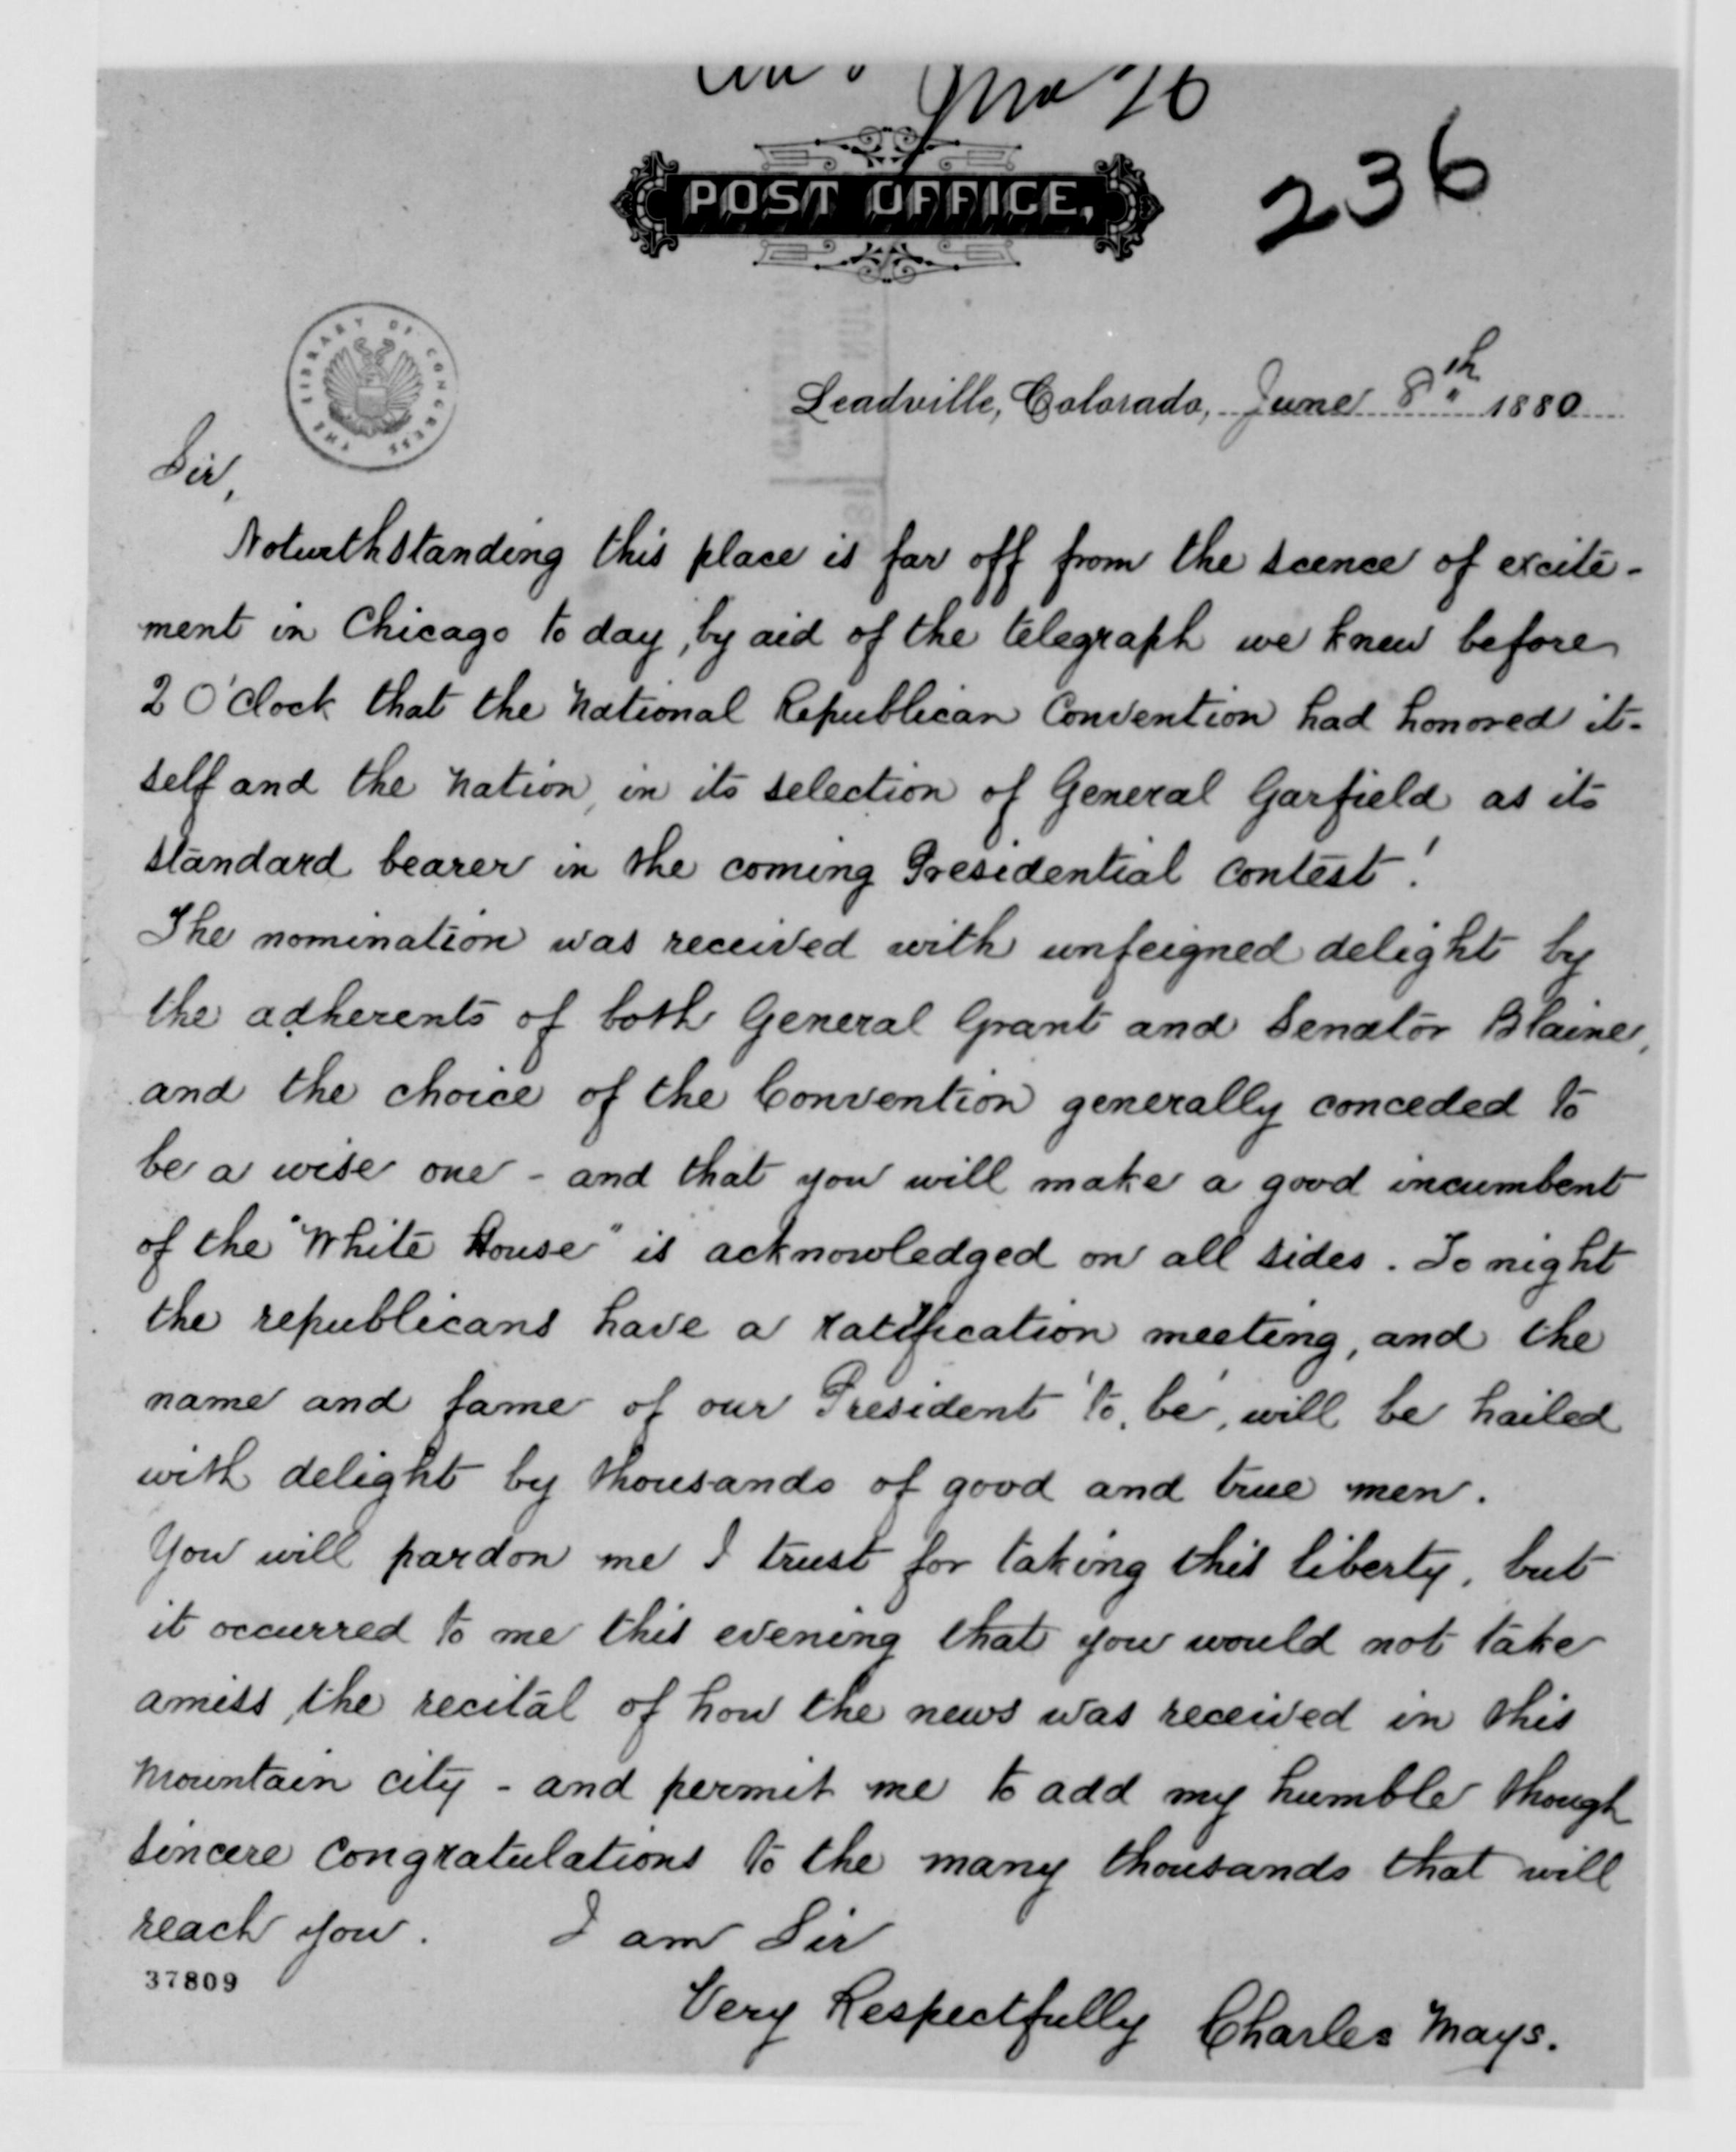 POST OFFICE,
236
THE LIBRARY OF CONGRESS
Leadville, Colorado, June 8th 1880
Sir,
Notwithstanding this place is far off from the scence of excite-
ment in Chicago to day, by aid of the telegraph we knew before
2 O'Clock that the National Republican Convention had honored it-
self and the nation, in its selection of General Garfield as its
standard bearer in the coming Presidential contest!
The nomination was received with unfeigned delight by
the adherents of both General Grant and Senator Blaine,
and the choice of the Convention generally conceded to
be a wise one - and that you will make a good incumbent
of the "White House" is acknowledged on all sides. To night
the republicans have a ratification meeting, and the
name and fame of our President 'to be', will be hailed
with delight by thousands of good and true men.
You will pardon me I trust for taking this liberty, but
it occurred to me this evening that you would not take
amiss, the recital of how the news was received in this
mountain city - and permit me to add my humble though
sincere congratulations to the many thousands that will
reach you. I am Sir
37809
Very Respectfully Charles Mays.